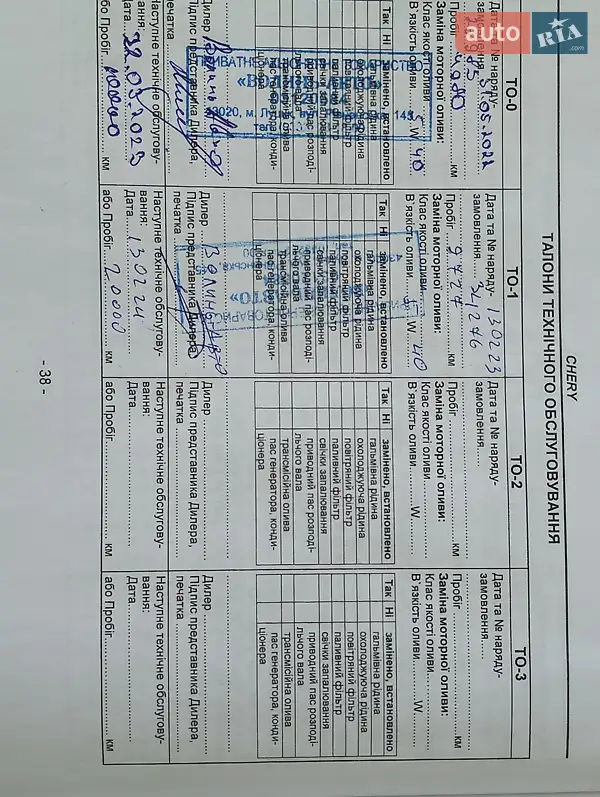 CHERY
ТАЛОНИ ТЕХНІЧНОГО ОБСЛУГОВУВАННЯ
ТО-0
Дата та № наряду-
замовлення 31.05.2022
Пробіг км
Заміна моторної оливи:
Клас якості оливи
В`язкість оливи W 40
Так Ні замінено, встановлено
гальмівна рідина
охолоджуюча рідина
повітряний фільтр
паливний фільтр
свічки запалювання
приводний пас розподі-
льчого вала
трансмісійна олива
пас генератора, конди-
ціонера
Дилер
Підпис представника Дилера,
печатка
Наступне технічне обслугову-
вання:
Дата
або Пробіг 10000 км
ТО-1
Дата та № наряду- 130223
замовлення 34276
Пробіг 9727 км
Заміна моторної оливи:
Клас якості оливи
В`язкість оливи W 40
Так Ні замінено, встановлено
гальмівна рідина
охолоджуюча рідина
повітряний фільтр
паливний фільтр
свічки запалювання
приводний пас розподі-
льчого вала
трансмісійна олива
пас генератора, конди-
ціонера
Дилер ВОЛИНЬ-АВТО
Підпис представника Дилера,
печатка
Наступне технічне обслугову-
вання:
Дата 130224
або Пробіг 20000 км
ТО-2
Дата та № наряду-
замовлення
Пробіг км
Заміна моторної оливи:
Клас якості оливи
В`язкість оливи W
Так Ні замінено, встановлено
гальмівна рідина
охолоджуюча рідина
повітряний фільтр
паливний фільтр
свічки запалювання
приводний пас розподі-
льчого вала
трансмісійна олива
пас генератора, конди-
ціонера
Дилер
Підпис представника Дилера,
печатка
Наступне технічне обслугову-
вання:
Дата
або Пробіг км
ТО-3
Дата та № наряду-
замовлення
Пробіг км
Заміна моторної оливи:
Клас якості оливи
В`язкість оливи W
Так Ні замінено, встановлено
гальмівна рідина
охолоджуюча рідина
повітряний фільтр
паливний фільтр
свічки запалювання
приводний пас розподі-
льчого вала
трансмісійна олива
пас генератора, конди-
ціонера
Дилер
Підпис представника Дилера,
печатка
Наступне технічне обслугову-
вання:
Дата
або Пробіг км
- 38 -
auto RIA.com